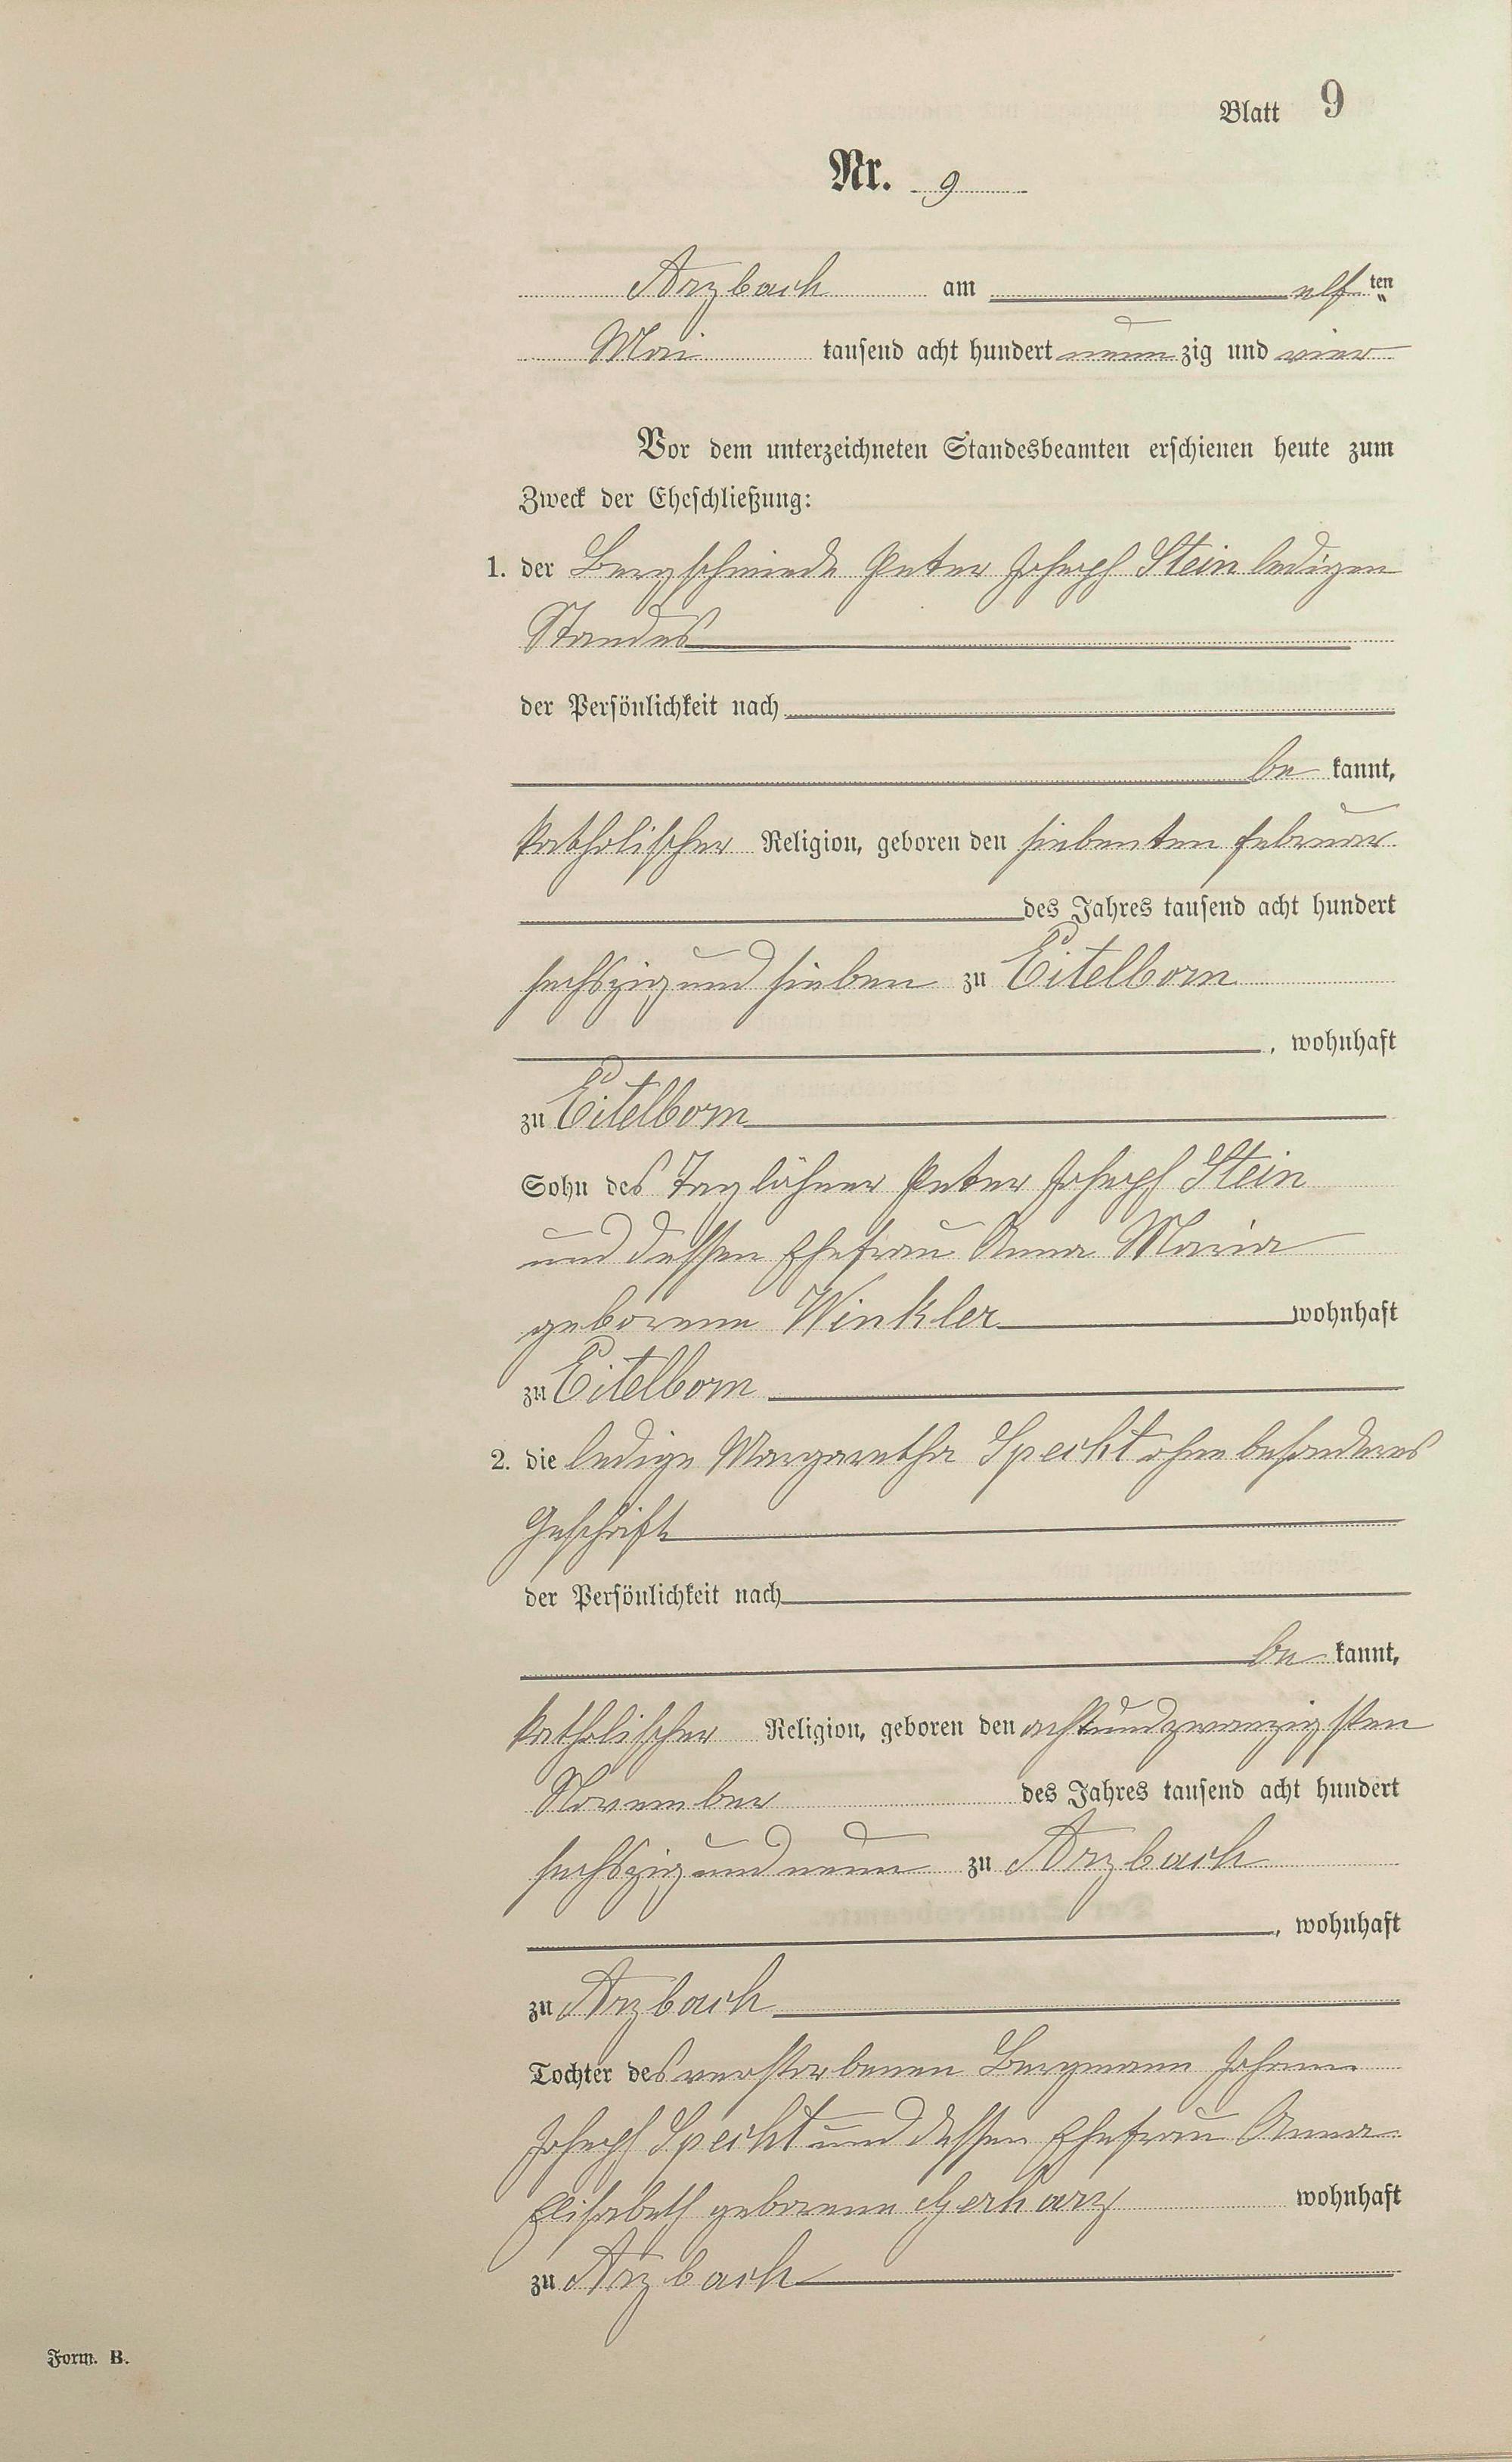 Blatt 9
Nr. 9
Arzbach am elf ten
Mai tausend acht hundert neun zig und vier
Vor dem unterzeichneten Standesbeamten erschienen heute zum
Zweck der Eheschließung:
1. der Bergschmiede Peter Joseph Stein ledigen
Standes
der Persönlichkeit nach
be kannt,
katholischer Religion, geboren den siebenten Februar
des Jahres tausend acht hundert
sechszig und sieben zu Eitelborn
, wohnhaft
zu Eitelborn
Sohn des Taglöhner Peter Joseph Stein
und dessen Ehefrau Anna Maria
geborene Winkler wohnhaft
zu Eitelborn
2. die ledige Margaretha Specht ohne besonderes
Geschäft
der Persönlichkeit nach
be kannt,
katholischer Religion, geboren den achtundzwanzigsten
November des Jahres tausend acht hundert
sechszig und neun zu Arzbach
, wohnhaft
zu Arzbach
Tochter des verstorbenen Bergmann Johann
Joseph Specht und dessen Ehefrau Anna
Elisabeth geborene Gerharz wohnhaft
zu Arzbach
Form. B.